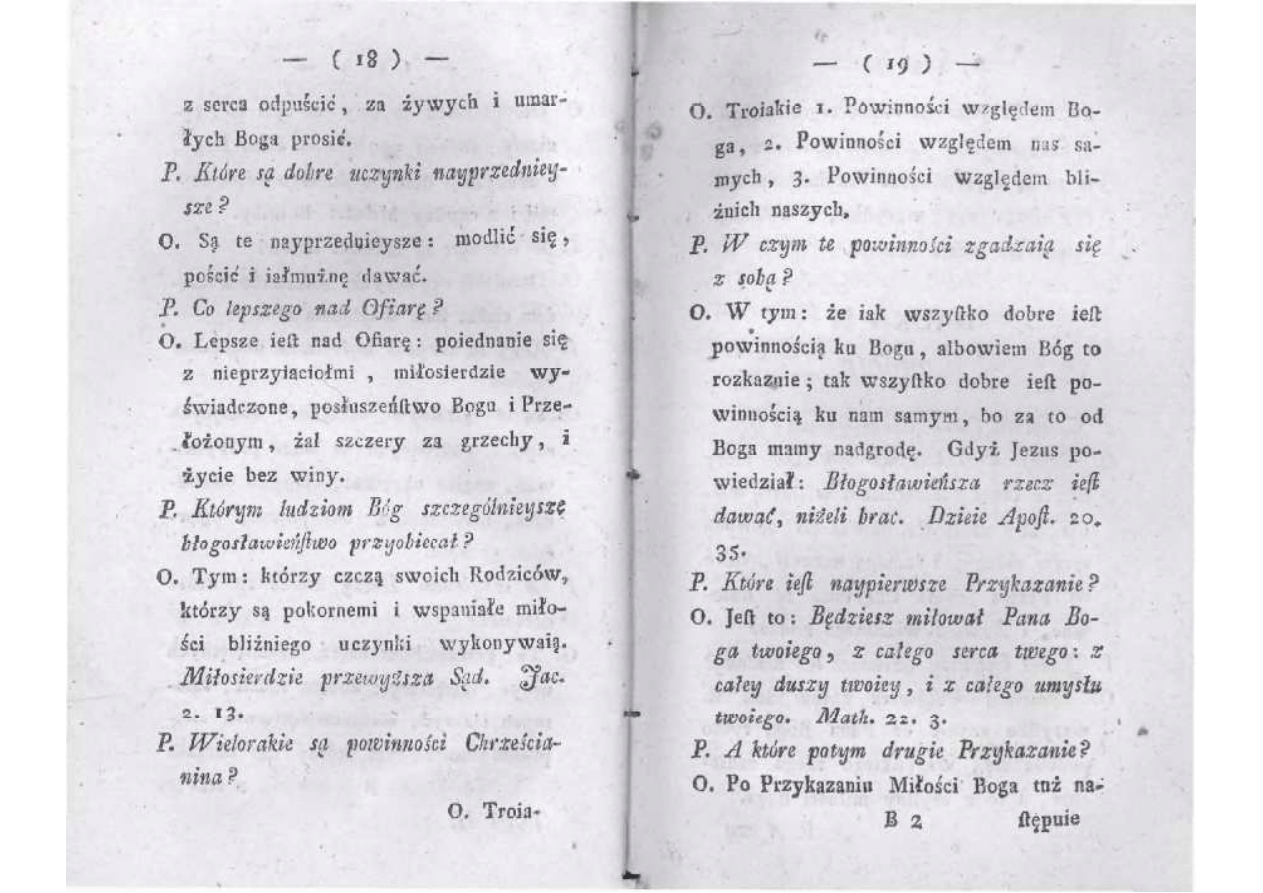 — ( 18 ) —
z serca odpuścić, za żywych i umar-
łych Boga prosić.
P. Które są dobre uczynki nayprzedniey-
sze?
O. Są te nayprzednieysze: modlić się,
pościć i iałmużnę dawać.
P. Co lepszego nad Ofiarę?
O. Lepsze ieſt nad Ofiarę: poiednanie się
z nieprzyiaciołmi , miłosierdzie wy-
świadczone, posłuszeńſtwo Bogu i Prze-
łożonym, żal szczery za grzechy, i
życie bez winy.
P. Którym ludziom Bóg szczególnieyszę
błogosławieńſtwo przyobiecał?
O. Tym: którzy czczą swoich Rodziców,
którzy są pokornemi i wspaniałe miło-
ści bliźniego uczynki wykonywaią.
Miłosierdzie przewyższa Sąd. Jac.
2. 13.
P. Wielorakie są powinności Chrześcia-
nina?
O. Troia-
— ( 19 ) —
O. Troiakie 1. Powinności względem Bo-
ga, 2. Powinności względem nas sa-
mych, 3. Powinności względem bli-
źnich naszych.
P. W czym te powinności zgadzaią się
z sobą?
O. W tym: że iak wszyſtko dobre ieſt
powinnością ku Bogu, albowiem Bóg to
rozkazuie; tak wszyſtko dobre ieſt po-
winnością ku nam samym, bo za to od
Boga mamy nadgrodę. Gdyż Jezus po-
wiedział: Błogosławieńsza rzecz ieſt
dawać, niżeli brac. Dzieie Apoſt. 20.
35.
P. Które ieſt naypierwsze Przykazanie?
O. Jeſt to: Będziesz miłował Pana Bo-
ga twoiego, z całego serca twego: z
całey duszy twoiey, i z całego umysłu
twoiego. Math. 22. 3.
P. A które potym drugie Przykazanie?
O. Po Przykazaniu Miłości Boga tuż na-
B 2 ſtępuie